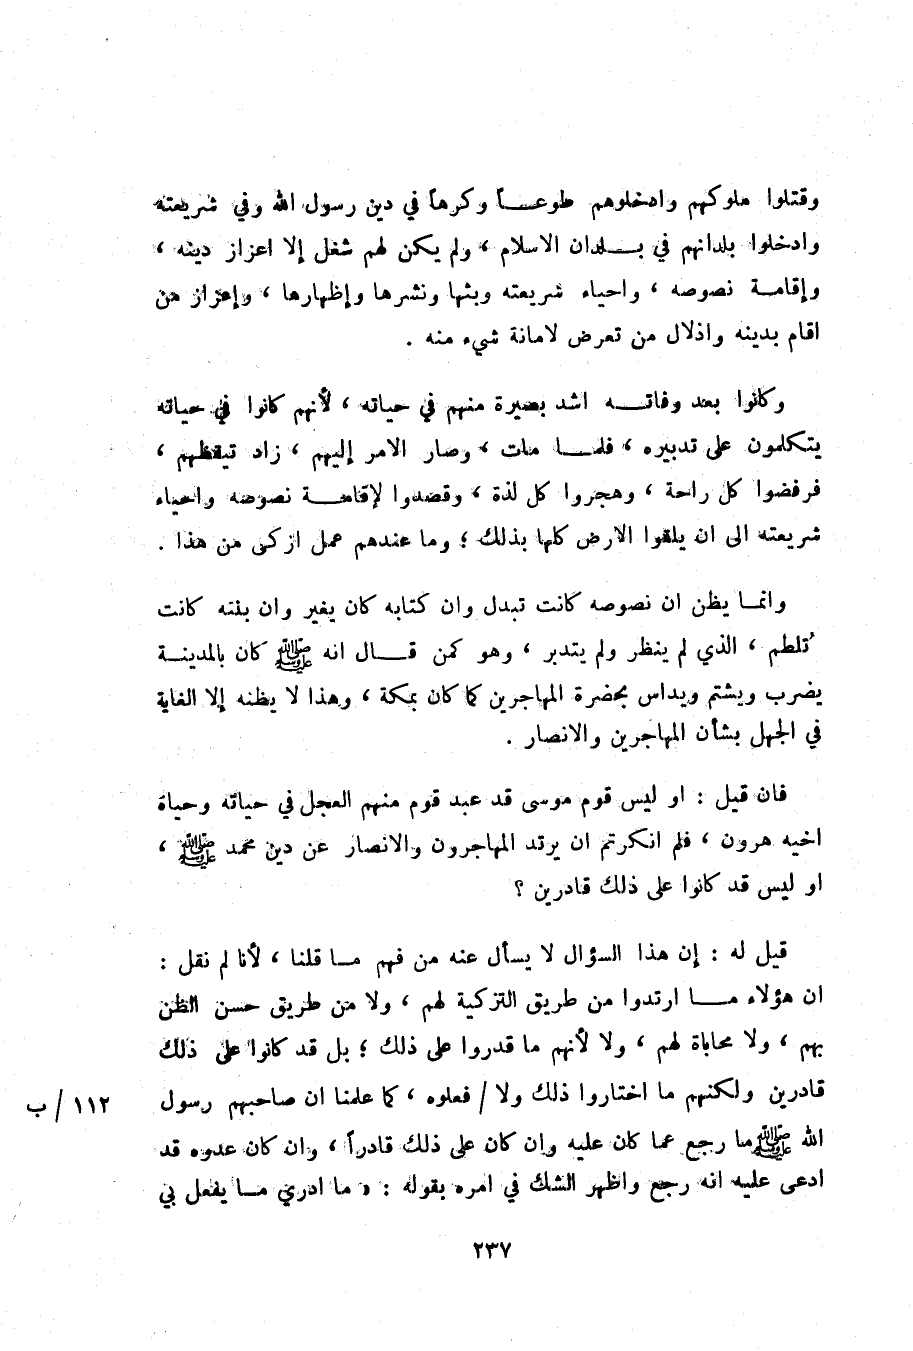 وقتلوا ملوكهم وادخلوهم طوعاً وكرهاً في دين رسول الله وفي شريعته
وادخلوا بلدانهم في بلدان الاسلام ، ولم يكن لهم شغل إلا اعزاز دينه ،
وإقامة نصوصه ، واحياء شريعته وبثها ونشرها وإظهارها ، وإعزاز من
اقام بدينه واذلال من تعرض لامانة شيء منه .
وكانوا بعد وفاته اشد بصيرة منهم في حياته ، لأنهم كانوا في حياته
يتكلمون على تدبيره ، فلما مات ، وصار الامر إليهم ، زاد تيقظهم ،
فرفضوا كل راحة ، وهجروا كل لذة ، وقصدوا لإقامة نصوصه واحياء
شريعته الى ان يلقوا الارض كلها بذلك ؛ وما عندهم عمل ازكى من هذا .
وانما يظن ان نصوصه كانت تبدل وان كتابه كان يغير وان بنته كانت
تُلطم ، الذي لم ينظر ولم يتدبر ، وهو كمن قال انه ﷺ كان بالمدينة
يضرب ويشتم ويداس بحضرة المهاجرين كما كان بمكة ، وهذا لا يظنه إلا الغاية
في الجهل بشأن المهاجرين والانصار .
فان قيل : او ليس قوم موسى قد عبد قوم منهم العجل في حياته وحياة
اخيه هرون ، فلم انكرتم ان يرتد المهاجرون والانصار عن دين محمد ﷺ ،
او ليس قد كانوا على ذلك قادرين ؟
قيل له : إن هذا السؤال لا يسأل عنه من فهم ما قلنا ، لأنا لم نقل :
ان هؤلاء ما ارتدوا من طريق التزكية لهم ، ولا من طريق حسن الظن
بهم ، ولا محاباة لهم ، ولا لأنهم ما قدروا على ذلك ؛ بل قد كانوا على ذلك
قادرين ولكنهم ما اختاروا ذلك ولا / فعلوه ، كما علمنا ان صاحبهم رسول
١١٢ / ب
الله ﷺ ما رجع عما كان عليه وإن كان على ذلك قادراً ، وان كان عدوه قد
ادعى عليه انه رجع واظهر الشك في امره بقوله : « ما ادري ما يفعل بي
٢٣٧